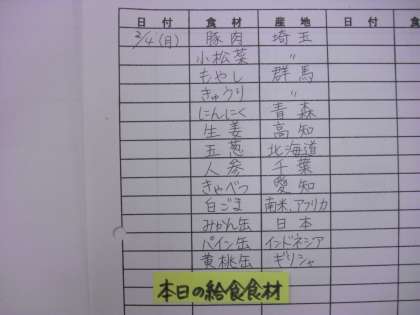 日付 食材 産地 日付
2/4(月) 豚肉 埼玉
小松菜 〃
もやし 群馬
きゅうり 〃
にんにく 青森
生姜 高知
玉葱 北海道
人参 千葉
きゃべつ 愛知
白ごま 南米、アフリカ
みかん缶 日本
パイン缶 インドネシア
黄桃缶 ギリシャ
本日の給食食材